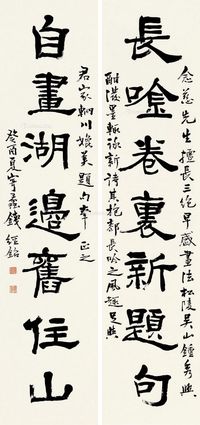 念慈先生擅長三絕早歲畫法松陵吳山鍾秀興
長唫卷裏新題句
酣潑墨輒詠新詩其抱都長吟之風趣足與
君家輞川媲美題句奉 正之
自畫湖邊舊住山
癸酉夏 錢經銘